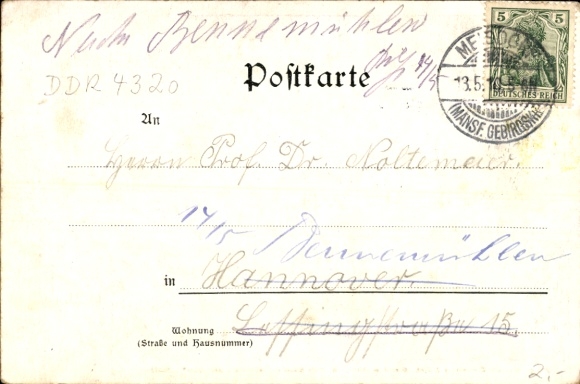 Nach Bennemühlen
14/5
DDR 4320
Postkarte
5
DEUTSCHES REICH
13.5.
(MANSF. GEBIRGSKR.)
An
Herrn Prof. Dr. Noltemeier.
14/5 Bennemühlen
in Hannover.
Lessingstraße 15.
Wohnung
(Straße und Hausnummer)
2.-